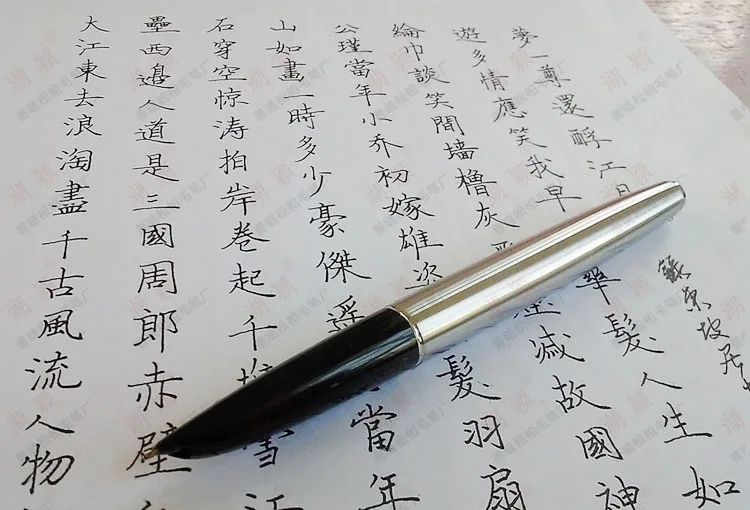 大江東去浪淘盡千古風流人物
壘西邊人道是三國周郎赤壁
石穿空惊涛拍岸卷起千雪江
山如畫一時多少豪傑遥當年
公瑾當年小乔初嫁雄姿髮羽扇
綸巾談笑間墙櫓灰滅故國神
遊多情應笑我早華髮人生如
夢一尊還酹江
蘇東坡